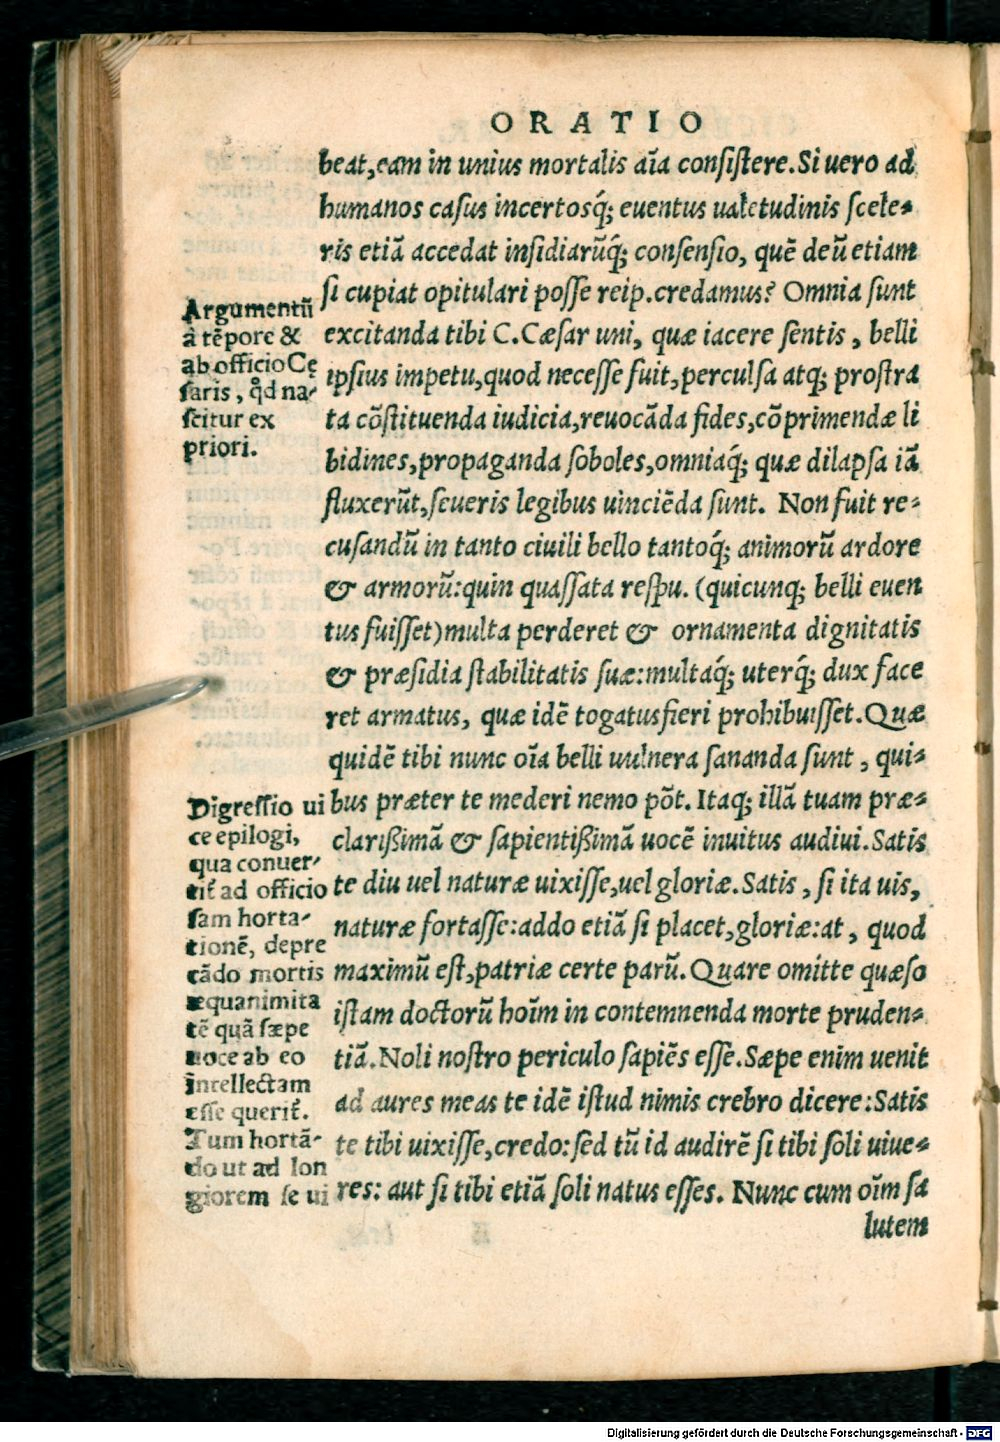 ORATIO
beat, eam in unius mortalis aīa consistere. Si uero ad
humanos casus incertosq́; euentus ualetudinis scele-
ris etiā accedat insidiarūq́; consensio, quē deū etiam
si cupiat opitulari posse reip. credamus? Omnia sunt
excitanda tibi C. Cæsar uni, quæ iacere sentis, belli
ipsius impetu, quod necesse fuit, perculsa atq; prostra
ta cōstituenda iudicia, reuocāda fides, cōprimendæ li
bidines, propaganda soboles, omniaq́; quæ dilapsa iā
fluxerūt, seueris legibus uinciēda sunt. Non fuit re-
cusandū in tanto ciuili bello tantoq́; animorū ardore
& armorū: quin quassata respu. (quicunq; belli euen
tus fuisset) multa perderet & ornamenta dignitatis
& præsidia stabilitatis suæ: multaq́; uterq́; dux face
ret armatus, quæ idē togatus fieri prohibuisset. Quæ
quidē tibi nunc oīa belli uulnera sananda sunt, qui-
bus præter te mederi nemo pōt. Itaq; illā tuam præ-
clarißimā & sapientißimā uocē inuitus audiui. Satis
te diu uel naturæ uixisse, uel gloriæ. Satis, si ita uis,
naturæ fortasse: addo etiā si placet, gloriæ: at, quod
maximū est, patriæ certe parū. Quare omitte quæso
istam doctorū hoīm in contemnenda morte pruden-
tiā. Noli nostro periculo sapiēs esse. Sæpe enim uenit
ad aures meas te idē istud nimis crebro dicere: Satis
te tibi uixisse, credo: sed tū id audirē si tibi soli uiue-
res: aut si tibi etiā soli natus esses. Nunc cum oīm sa
lutem
Argumentū
à tēpore &
ab officio Cę
saris, qd na-
scitur ex
priori.
Digressio ui
ce epilogi,
qua conuer-
tit ad officio
sam horta-
tionē, depre
cādo mortis
æquanimita
tē quā sæpe
uoce ab eo
intellectam
esse querit.
Tum hortā-
do ut ad lon
giorem se ui
Digitalisierung gefördert durch die Deutsche Forschungsgemeinschaft - DFG